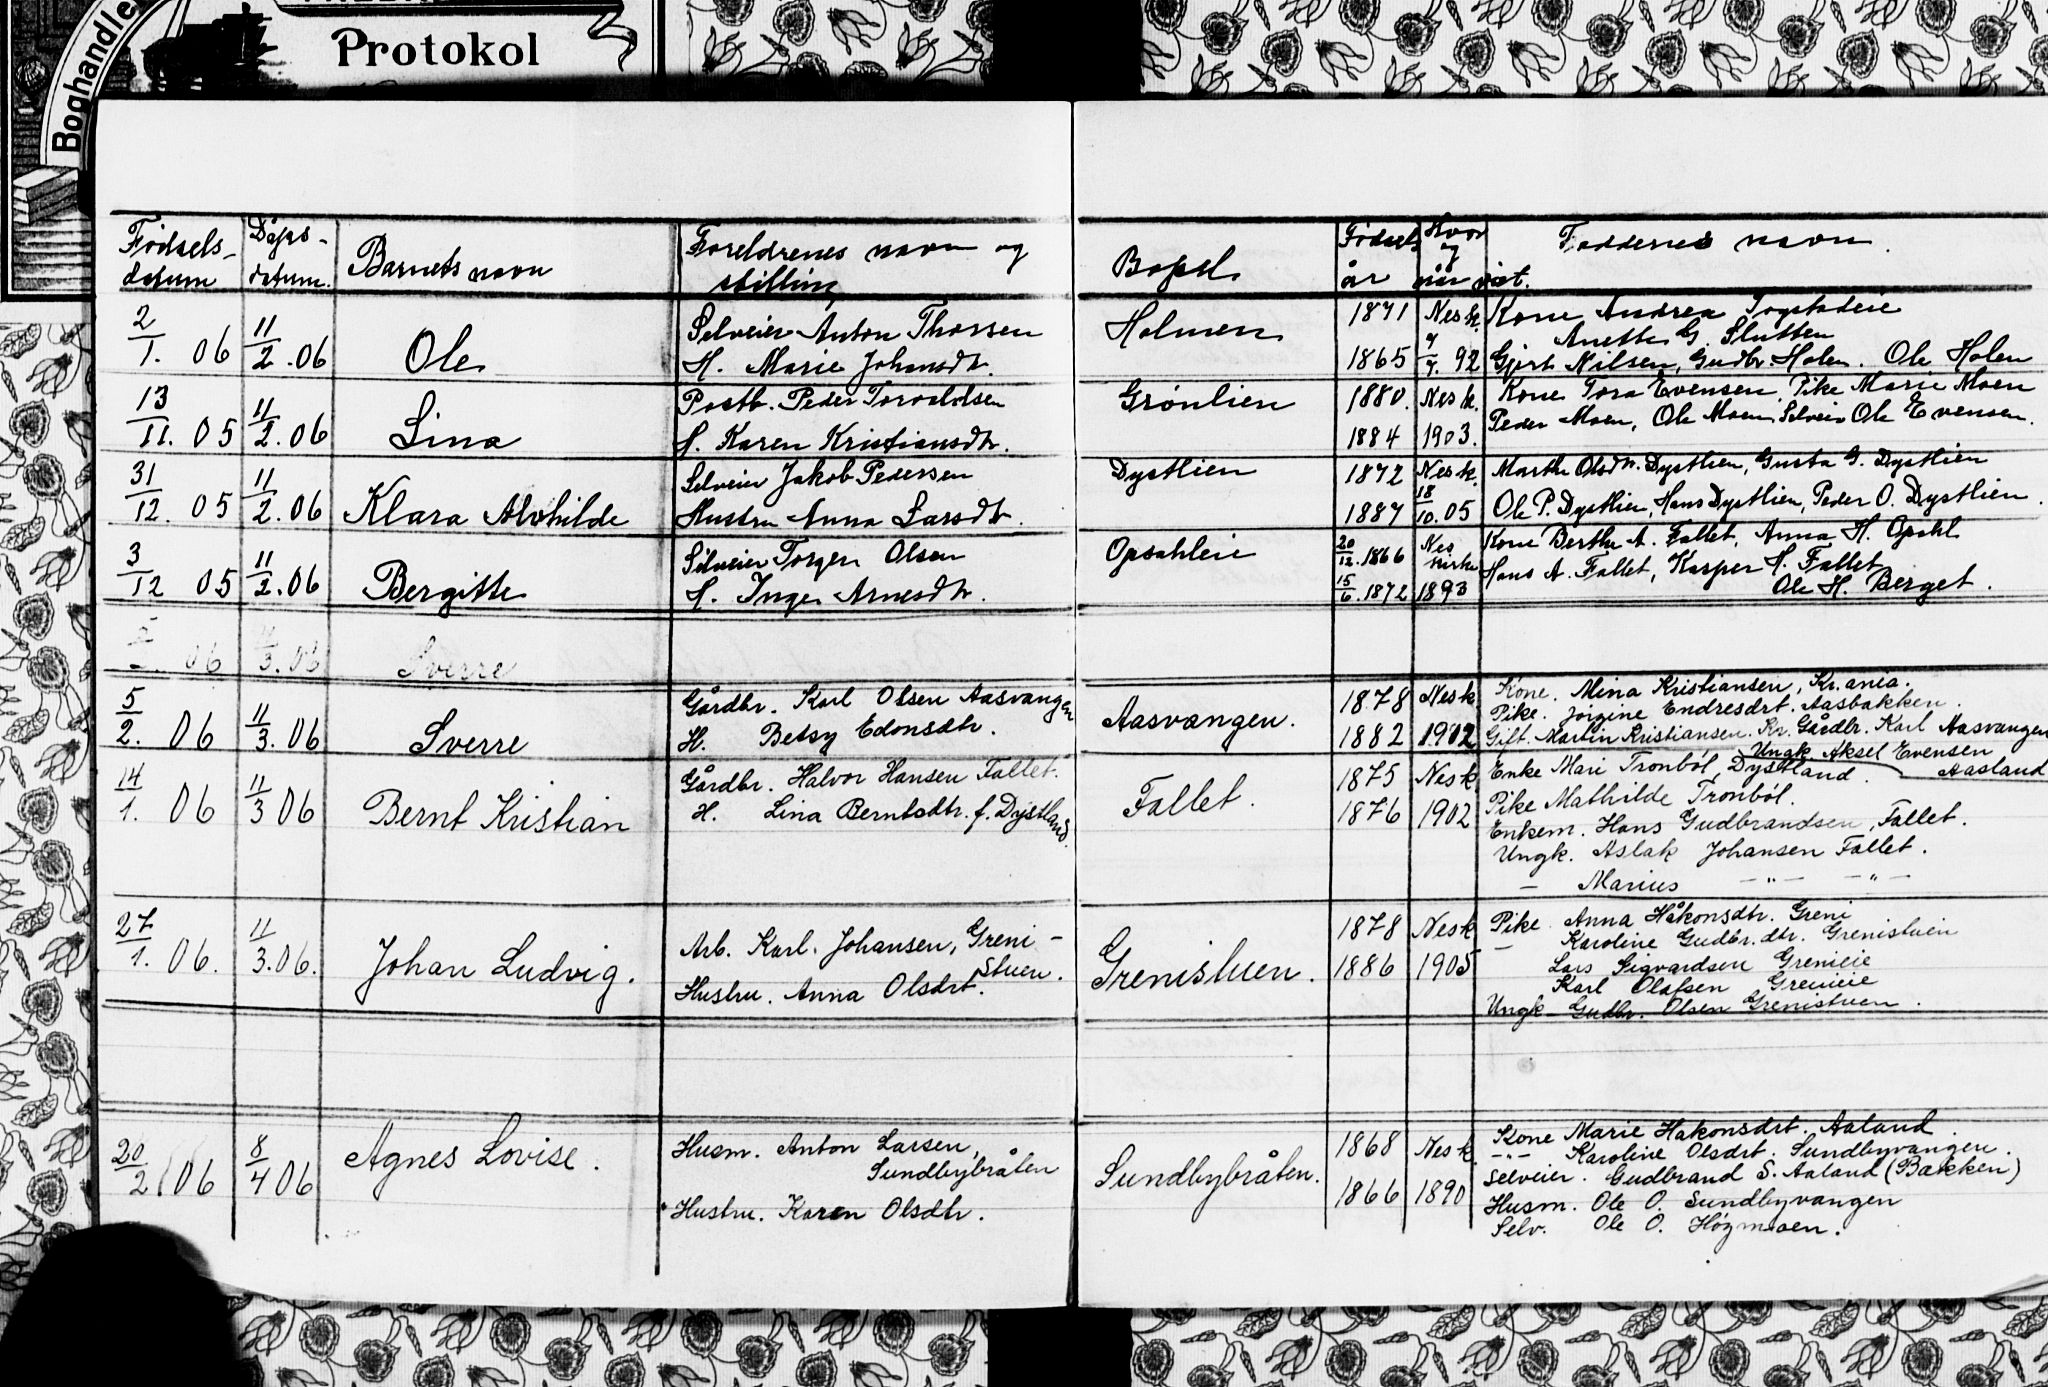 Boghandle
Protokol
Fødsels-
datum
Dåps-
datum.
Barnets navn
Foreldrenes navn og
stilling
Bopel
Fødsels
år
Hvor
og
når viet.
Faddernes navn.
2/1. 06
11/2.06
Ole
Selveier Anton Thorsen
H. Marie Johansdtr.
Holmen
1871
1865
Nesk.
92
Kone Andrea
Anette G. Slutten
Gjert Nilsen, Gudbr. Holen. Ole Holen
13/11. 05
11/2.06
Lina
Postb. Peder Toroldsen
H. Karen Kristiansdtr.
Grønlien
1880.
1884
Nesk.
1903.
Kone Tora Evensen, Pike Marie Moen
Peder Moen, Ole Moen, Selveier Ole Evensen.
31/12. 05
11/2.06
Klara Alvhilde
Selveier Jakob Pedersen
Hustru Anna Larsdtr.
Dystlien
1872
1887
Nesk.
18/10.05
Marthe Olsdtr. Dystlien, Gusta G. Dystlien
Ole P. Dystlien, Hans Dystlien, Peder O. Dystlien.
3/12 05
11/2.06
Bergitte
Selveier Torger Olsen
H. Inger Arnesdtr.
Opsahleie
20/12.1866
15/6.1872
Nes
kirke
1893
Kone Berthe A. Fallet, Anna H. Opahl
Hans A. Fallet, Kasper H. Fallet
Ole H. Berget.
06
11/3.06
Sverre
5/2. 06
11/3.06
Sverre
Gårdbr. Karl Olsen Aasvangen
H. Betsy Edonsdtr.
Aasvangen.
1878
1882
Nesk
1902
Kone. Mina Kristiansen, Kr.ania.
Pike. Jørgine Endresdrt. Aasbakken.
Gift. Martin Kristiansen. Kr. Gårdbr. Karl Aasvangen
Ungk Aksel Evensen
Aasland
14/1. 06
11/3 06
Bernt Kristian
Gårdbr. Halvor Hansen Fallet.
H. Lina Berntsdtr. f. Dystland.
Fallet.
1875
1876
Nesk
1902
Enke Mari Tronbøl, Dystland.
Pike Mathilde Tronbøl.
Enkem. Hans Gudbrandsen, Fallet.
Ungk. Aslak Johansen Fallet.
— Marius —"— —"—
27/1. 06.
11/3.06.
Johan Ludvig.
Arb. Karl. Johansen, Greni-
stuen.
Hustru. Anna Olsdrt.
Grenistuen.
1878
1886
Nesk
1905
Pike Anna Håkonsdtr. Greni
— Karoline Gudbr.dtr. Grenistuen
Lars Sigvardsen Grenieie
Karl Olafsen Grenieie
Ungk Gudbr. Olsen Grenistuen.
20/2 06
8/4 06
Agnes Lovise.
Husm. Anton Larsen,
Sundbybråten
Hustru. Karen Olsdtr.
Sundbybråten.
1868
1866
Nesk.
1890
Kone Marie Hakonsdrt. Aaland.
—"— Karoline Olsdrt. Sundbyvangen.
Selveier. Gudbrand S. Aaland (Bakken)
Husm. Ole O. Sundbyvangen
Selv. Ole O. Høgmoen.